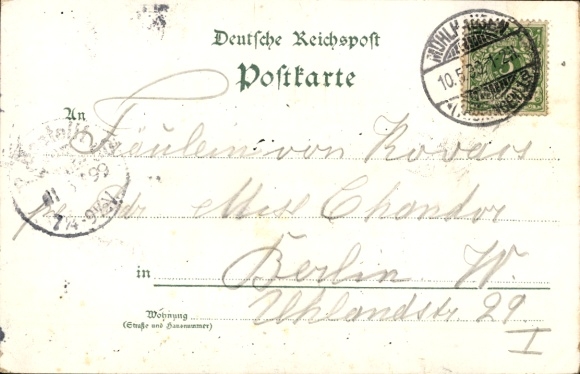 Deutsche Reichspost
Postkarte
MÜHLHAUSEN
10.5.99
5
An
Fräulein von Kovacs
adr Miss Chandor
in Berlin W.
Wohnung
(Straße und Hausnummer)
Uhlandstr. 29
I
99
7¼-8½V.